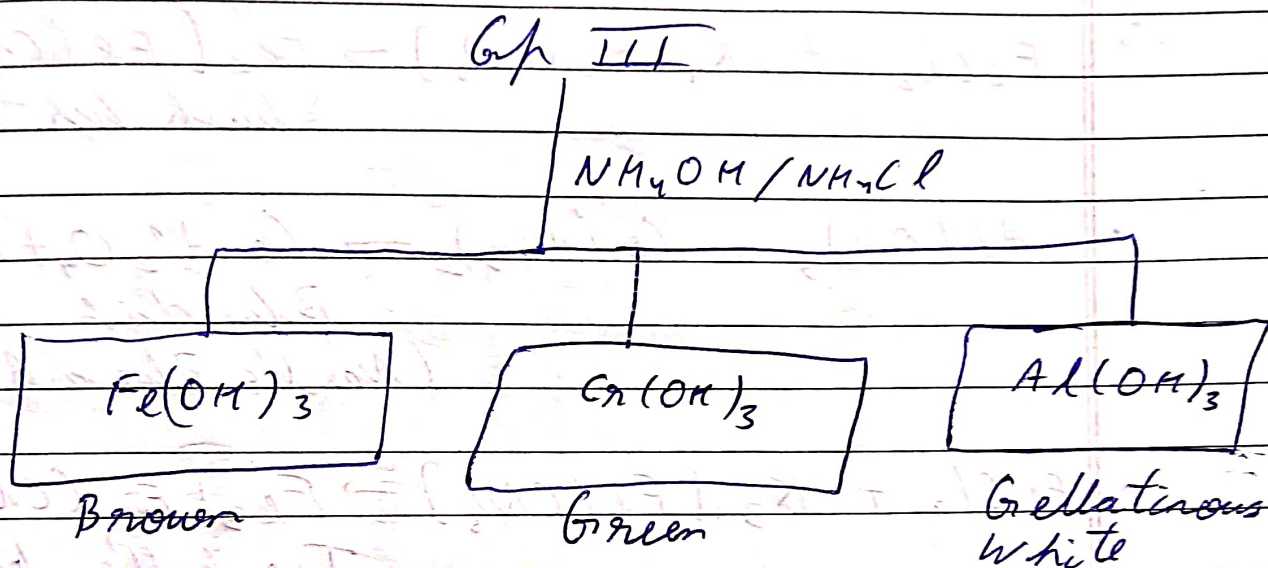 Grp III
NH4OH / NH4Cl
Fe(OH)3
Cr(OH)3
Al(OH)3
Brown
Green
Gellatinous
White